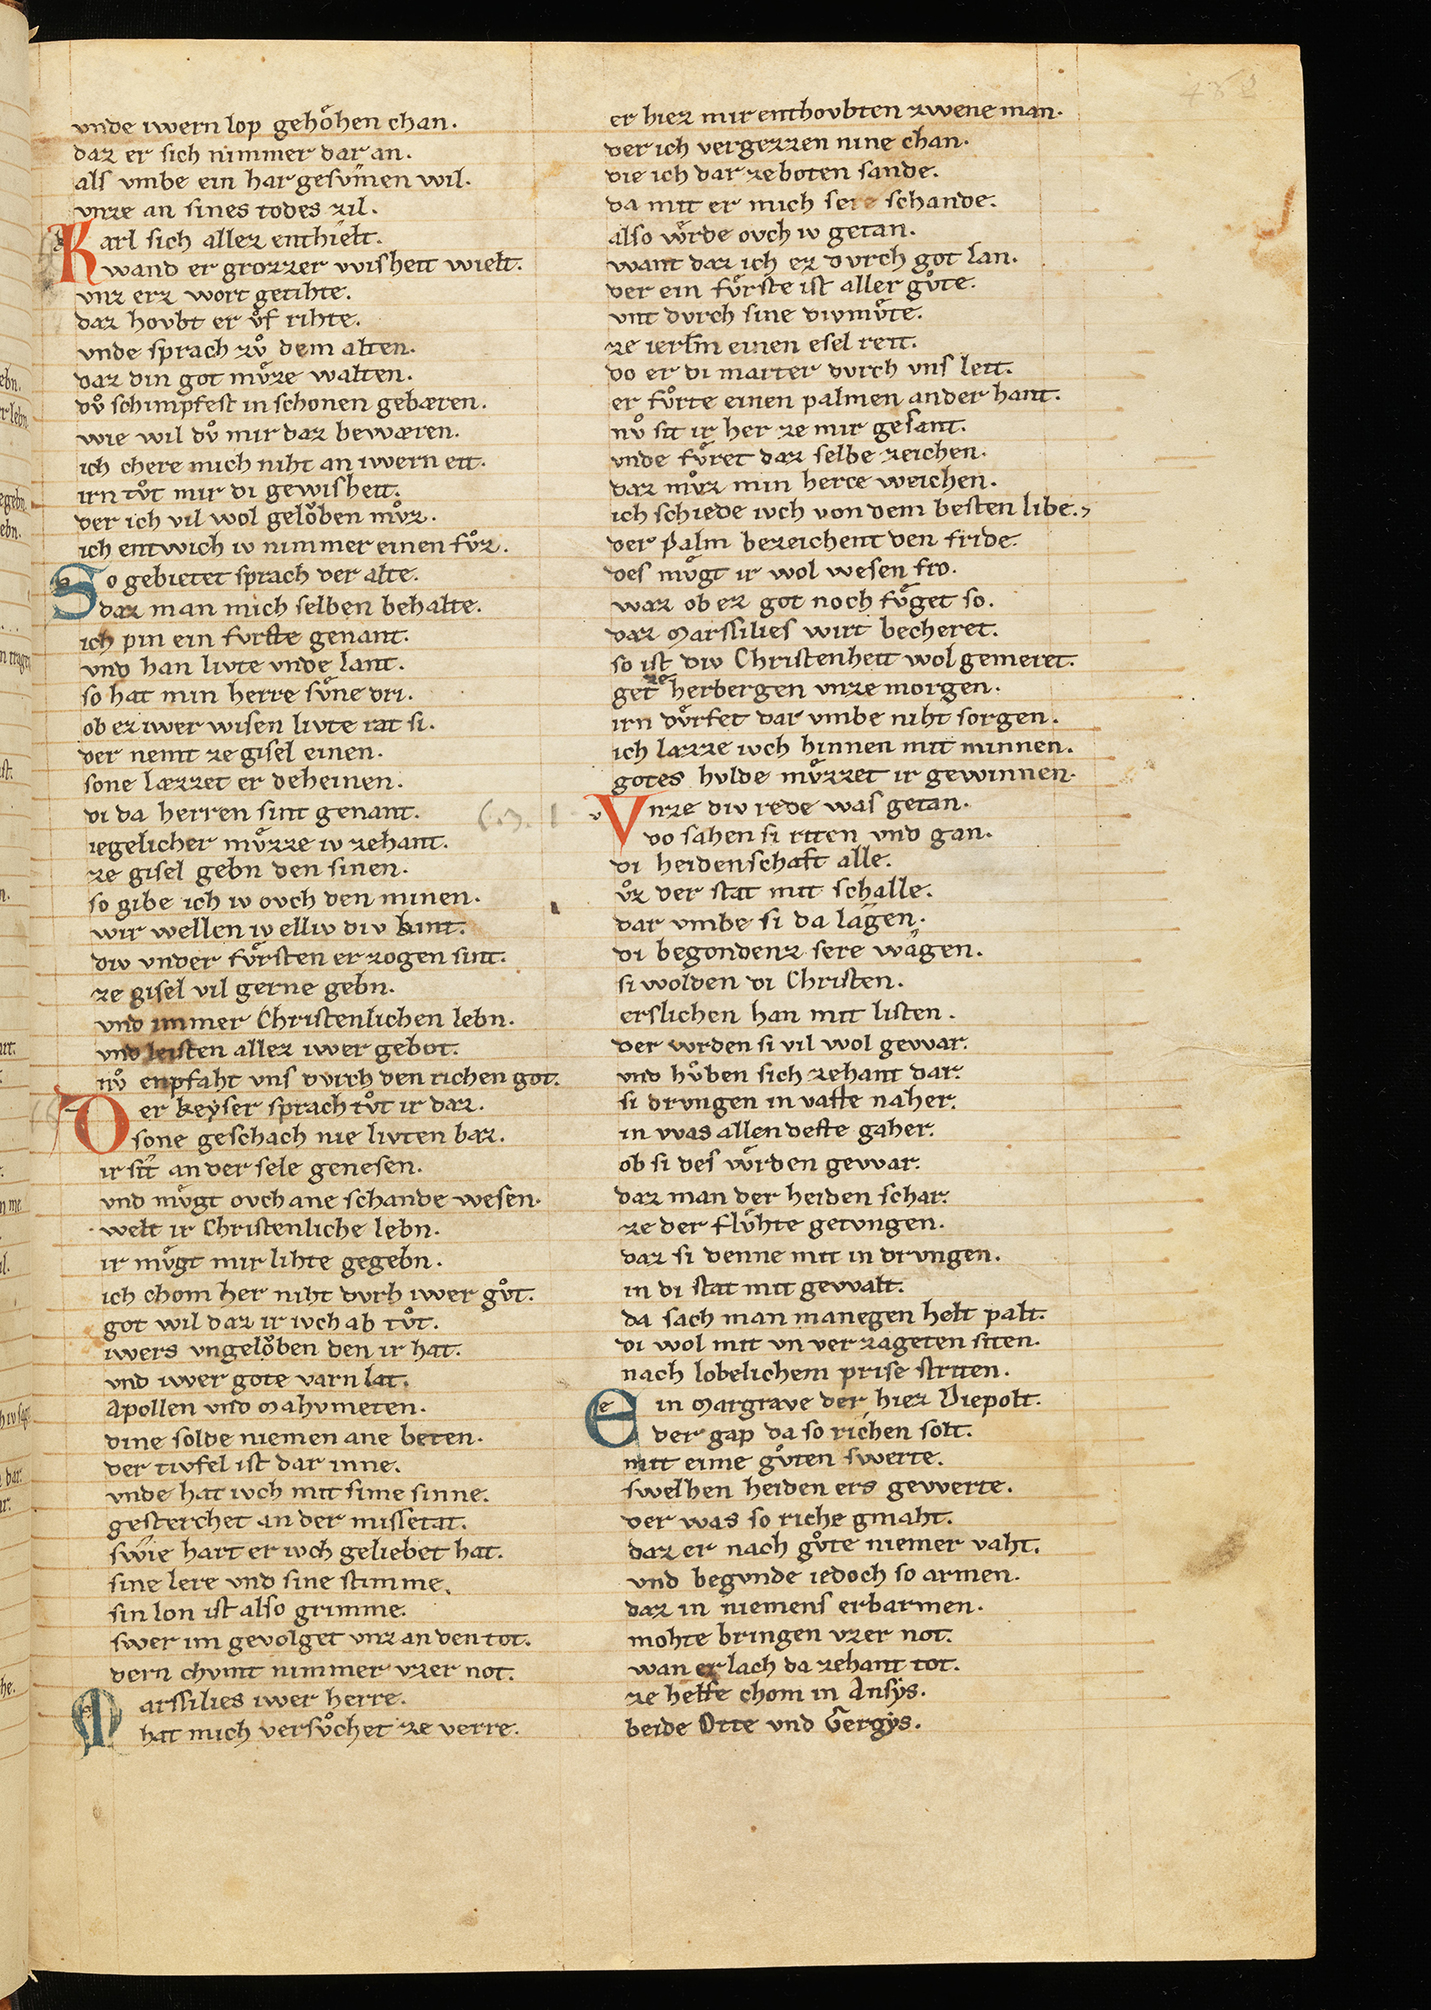 vnde iwern lop gehoͤhen chan.
daz er sich nimmer dar an.
als vmbe ein har gesvͦmen wil.
vnze an sines todes zil.
Karl sich allez enthielt.
wand er grozzer wisheit wielt.
vnz erz wort getihte.
daz hovbt er vͦf rihte.
vnde sprach zvͦ dem alten.
daz din got mvͦze walten.
dvͦ schimpfest in schonen gebæren.
wie wil dvͦ mir daz bewæren.
ich chere mich niht an iwern eit.
irn tvͦt mir di gewisheit.
der ich vil wol geloͮben mvͦz.
ich entwich iv nimmer einen fvͦz.
So gebietet sprach der alte.
daz man mich selben behalte.
ich pin ein furste genant.
vnd han livte vnde lant.
so hat min herre svͦne dri.
ob ez iwer wisen livte rat si.
der nemt ze gisel einen.
sone læzzet er deheinen.
di da herren sint genant.
iegelicher mvͦzze iv zehant.
ze gisel gebn den sinen.
so gibe ich iv ovch den minen.
wir wellen iv elliv div kint.
div vnder fvͤrsten erzogen sint.
ze gisel vil gerne gebn.
vnd immer Christenlichen lebn.
vnd leisten allez iwer gebot.
nvͦ enpfaht vns dvrch den richen got.
Der keyser sprach tvͦt ir daz.
sone geschach nie livten baz.
ir sit an der sele genesen.
vnd mvͤgt ovch ane schande wesen.
welt ir Christenliche lebn.
ir mvͤgt mir lihte gegebn.
ich chom her niht dvrh iwer gvͦt.
got wil daz ir ivch ab tvͦt.
iwers vngeloͮben den ir hat.
vnd iwer gote varn lat.
Apollen vnd Mahvmeten.
dine solde niemen ane beten.
der tivfel ist dar inne.
vnde hat ivch mit sime sinne.
gesterchet an der missetat.
swie hart er ivch geliebet hat.
sine lere vnd sine stimme.
sin lon ist also grimme.
swer im gevolget vnz an den tot.
dern chvmt nimmer vzer not.
Marssilies iwer herre.
hat mich versvͦchet ze verre.
er hiez mir enthovbten zwene man.
der ich vergezzen nine chan.
die ich dar ze boten sande.
da mit er mich sere schande.
also wͤrde ovch iv getan.
want daz ich ez dvrch got lan.
der ein fvͤrste ist aller gvͦte.
vnt dvrch sine divmvͤte.
ze ierlm̄ einen esel reit.
do er di marter dvrch vns leit.
er fvͦrte einen palmen an der hant.
nvͦ sit ir her ze mir gesant.
vnde fvͤret daz selbe zeichen.
daz mvͦz min herce weichen.
ich schiede ivch von dem besten libe.
der palm bezeichent den fride.
des mvͤgt ir wol wesen fro.
waz ob ez got noch fvͤget so.
daz Marssilies wirt becheret.
so ist div Christenheit wol gemeret.
get ze herbergen vnze morgen.
irn dvͤrfet dar vmbe niht sorgen.
ich læzze ivch hinnen mit minnen.
gotes hvlde mvͤzzet ir gewinnen.
Vnze div rede was getan.
do sahen si riten vnd gan.
di heidenschaft alle.
vͦz der stat mit schalle.
dar vmbe si da lagen.
di begondenz sere wagen.
si wolden di Christen.
erslichen han mit listen.
der wrden si vil wol gewar.
vnd hvͦben sich zehant dar.
si drvngen in vaste naher.
in was allen deste gaher.
ob si des wͤrden gewar.
daz man der heiden schar.
ze der flvͤhte getvngen.
daz si denne mit in drvngen.
in di stat mit gewalt.
da sach man manegen helt palt.
di wol mit vnverzageten siten.
nach lobelichem prise striten.
Ein Margrave der hiez Diepolt.
der gap da so richen solt.
mit eime gvͦten swerte.
swelhen heiden ers gewerte.
der was so riche gmaht.
daz er nach gvͦte niemer vaht.
vnd begvnde iedoch so armen.
daz in niemens erbarmen.
mohte bringen vzer not.
wan er lach da zehant tot.
ze helfe chom in Ansys.
beide Otte vnd Gergys.